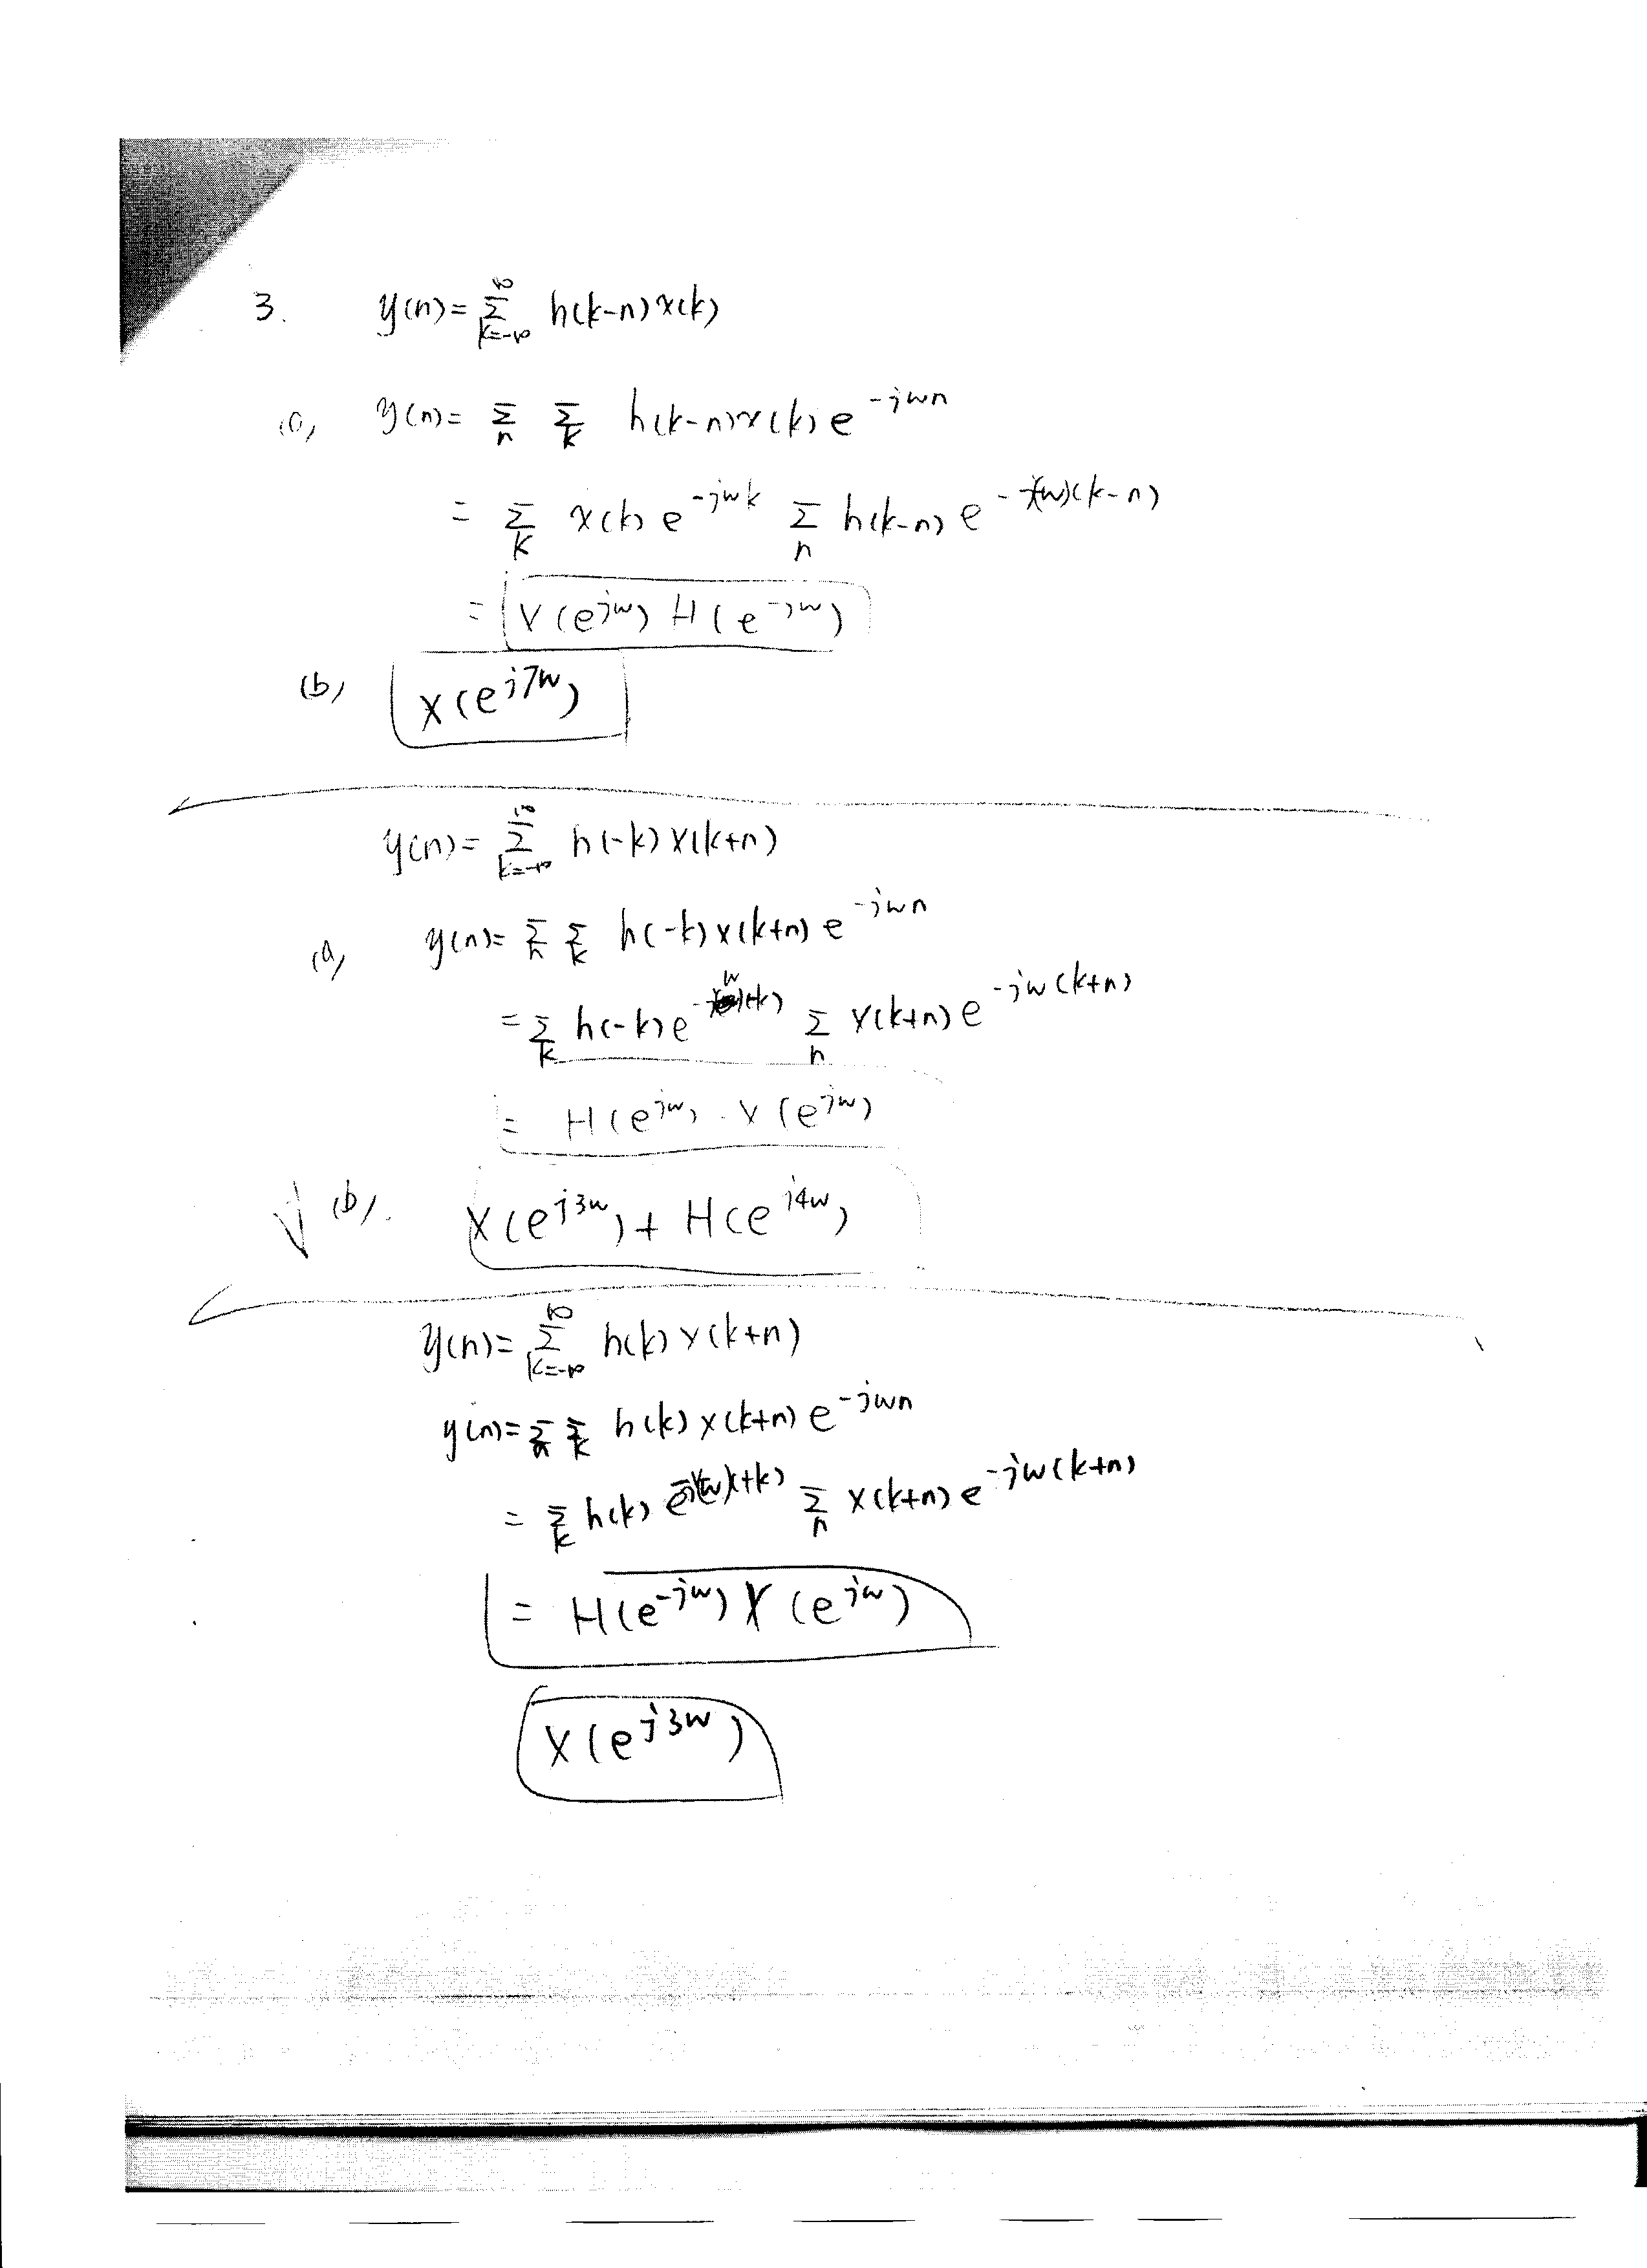 3. y(n)= Σ_{k=-∞}^{∞} h(k-n)x(k)
(a) y(n)= Σ_n Σ_k h(k-n)x(k)e^{-jwn}
= Σ_k x(k)e^{-jwk} Σ_n h(k-n)e^{-j(-w)(k-n)}
= X(e^{jw}) H(e^{-jw})
(b) X(e^{j7w})
y(n)= Σ_{k=-∞}^{∞} h(-k)x(k+n)
(a) y(n)= Σ_n Σ_k h(-k)x(k+n)e^{-jwn}
= Σ_k h(-k)e^{-jw(-k)} Σ_n x(k+n)e^{-jw(k+n)}
= H(e^{jw}) · X(e^{jw})
√ (b). X(e^{j3w})+H(e^{j4w})
y(n)= Σ_{k=-∞}^{∞} h(k)x(k+n)
y(n)= Σ_n Σ_k h(k)x(k+n)e^{-jwn}
= Σ_k h(k)e^{-j(-w)(+k)} Σ_n x(k+n)e^{-jw(k+n)}
= H(e^{-jw})X(e^{jw})
X(e^{j3w})